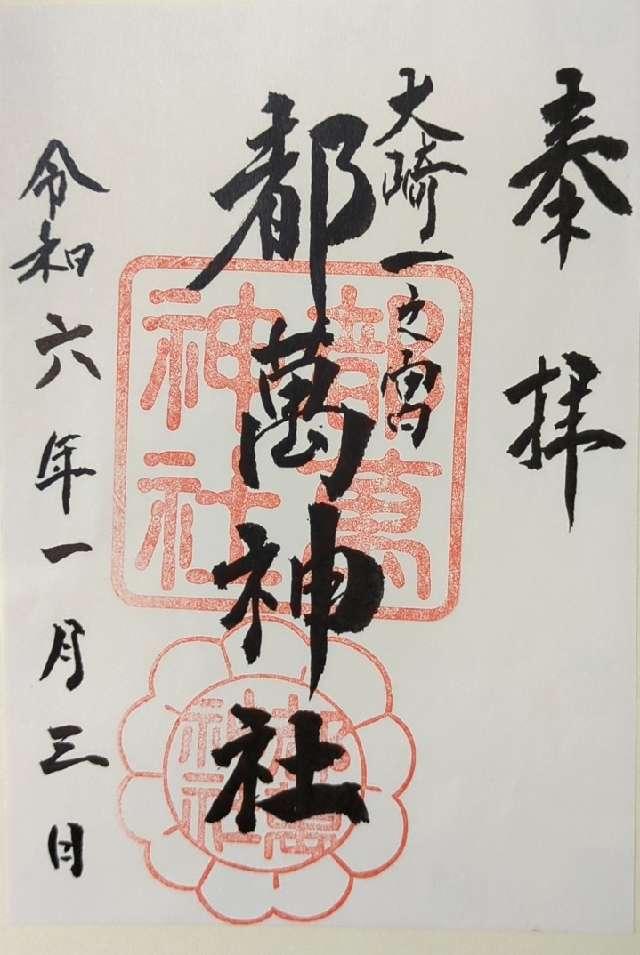 奉拝
大崎一之宮
都萬神社
令和六年一月三日
都萬
神社
都萬
神社